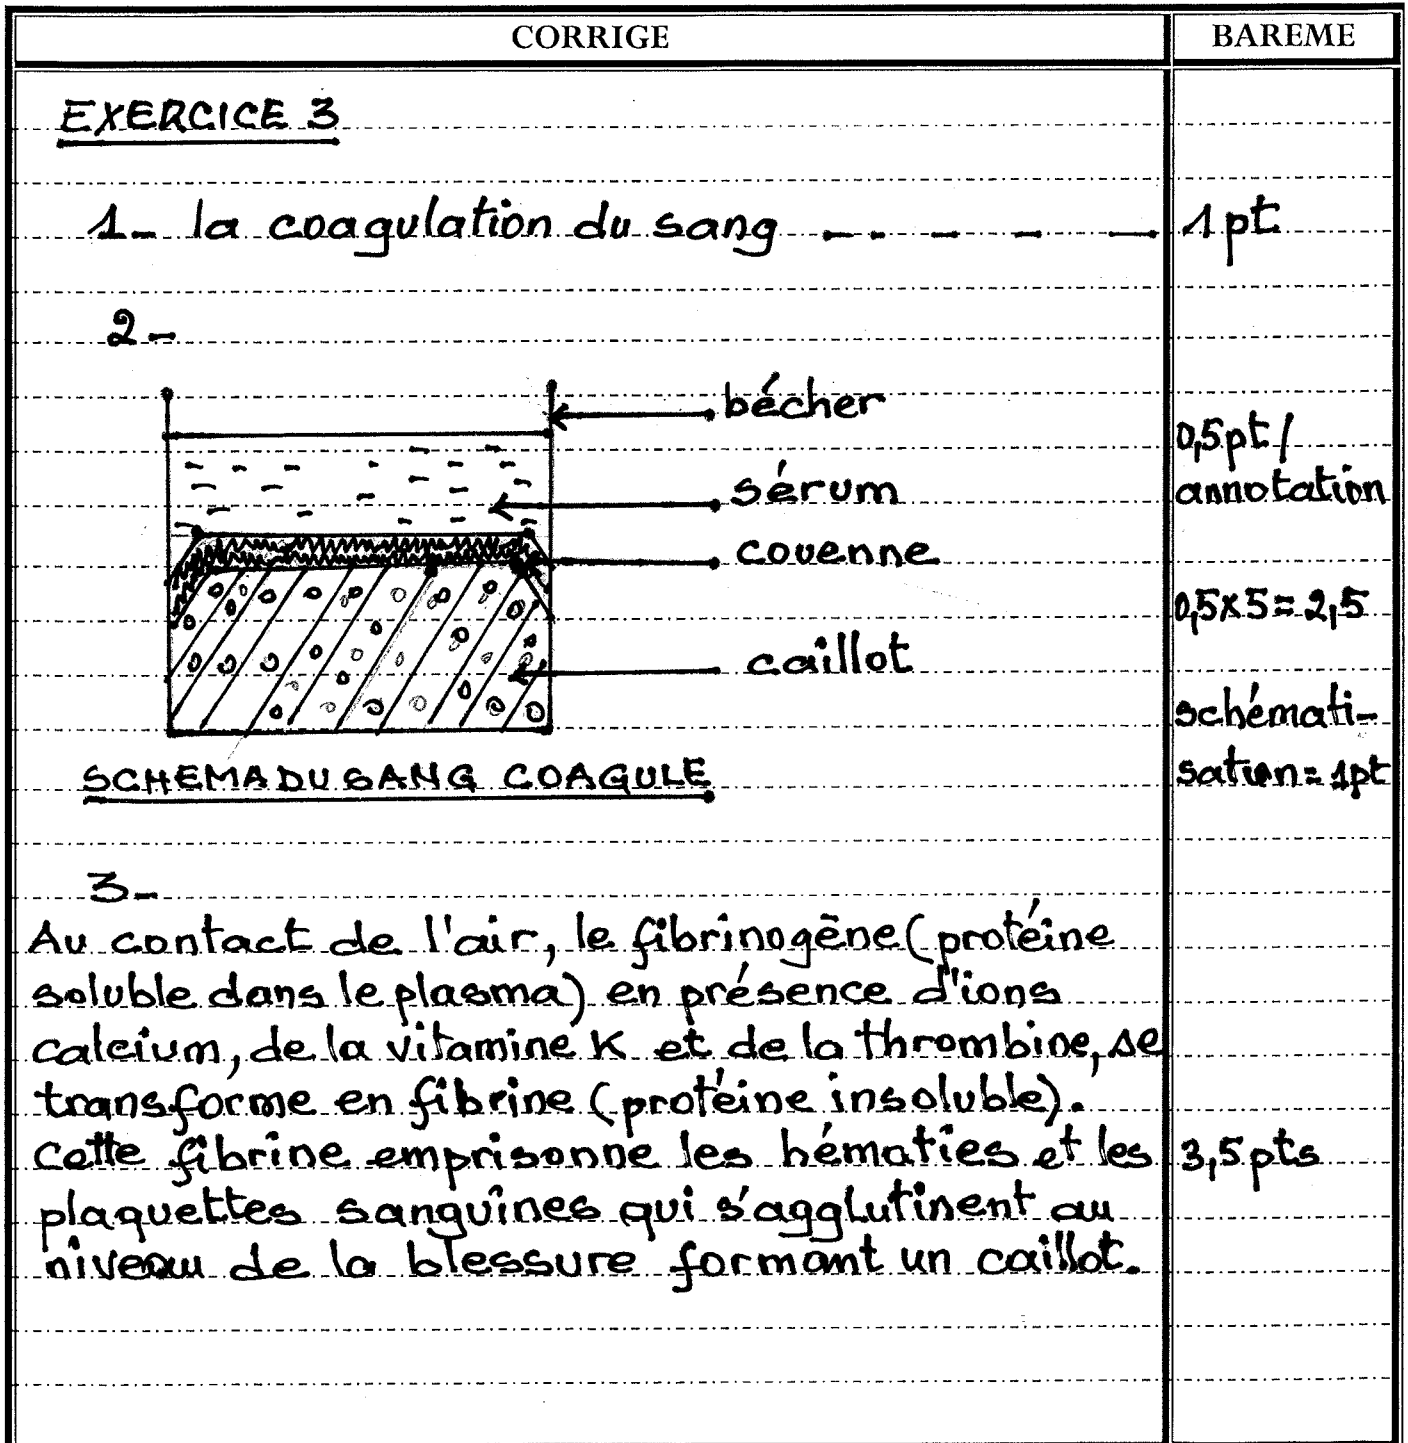 CORRIGE
BAREME
EXERCICE 3
1- la coagulation du sang
1pt
2-
bécher
0,5pt/
sérum
annotation
couenne
0,5x5=2,5
caillot
schémati-
SCHEMA DU SANG COAGULE
sation=1pt
3-
Au contact de l'air, le fibrinogène (protéine
soluble dans le plasma) en présence d'ions
calcium, de la vitamine K et de la thrombine, se
transforme en fibrine (protéine insoluble).
Cette fibrine emprisonne les hématies et les
3,5pts
plaquettes sanguines qui s'agglutinent au
niveau de la blessure formant un caillot.